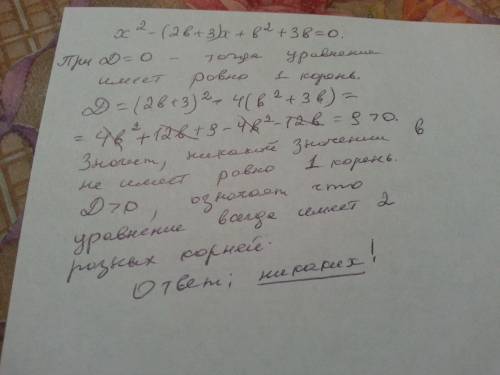 x² - (2в+3)x + в² + 3в = 0.
При D = 0 - тогда уравнение
имеет ровно 1 корень.
D = (2в+3)² - 4(в² + 3в) =
= 4в² + 12в + 9 - 4в² - 12в = 9 > 0.
Значит, никакой значении в
не имеет ровно 1 корень.
D > 0, означает что
уравнение всегда имеет 2
разных корней.
Ответ: никаких!